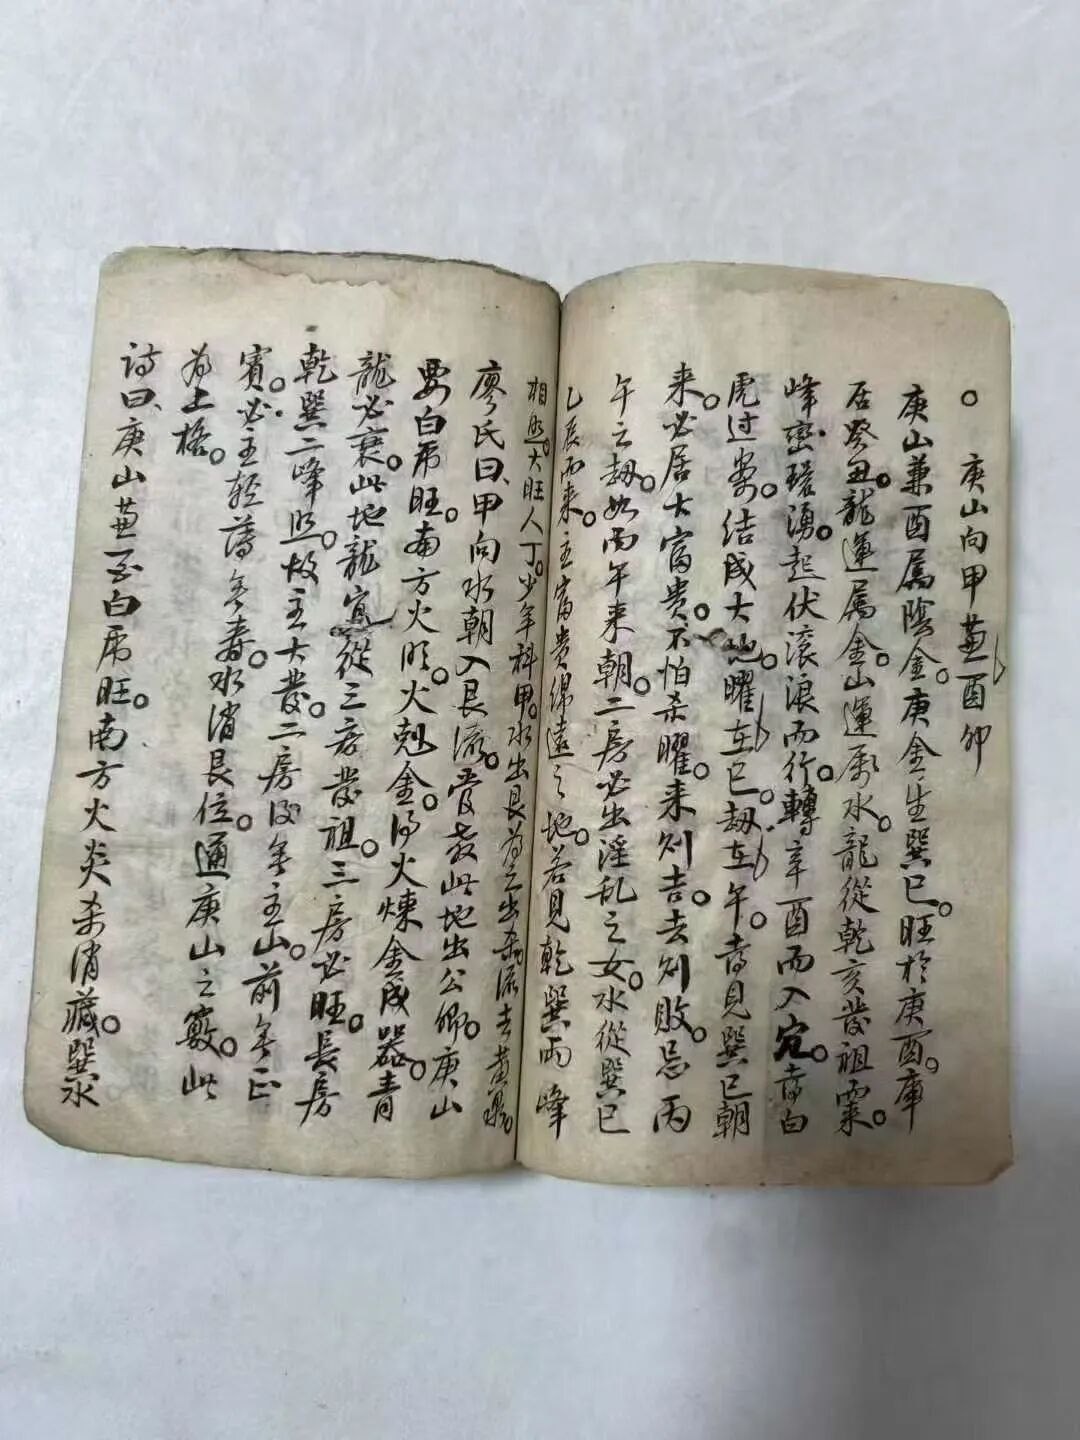 ○ 庚山向甲兼酉卯
庚山兼酉屬陰金。庚金生巽巳。旺於庚酉。庫
居癸丑。龍運屬金。山運屬水。龍從乾亥發祖而來。
峰巒環湧。起伏滾浪而行。轉辛酉而入穴。喜白
虎过案。结成大地。曜在巳。刼在午。喜見巽巳朝
来。必居大富贵。不怕杀曜。来则吉。去则败。忌丙
午之刼。如丙午来朝。二房必出淫乱之女。水從巽巳
乙辰而来。主富贵綿遠之地。若見乾巽両峰
相照。大旺人丁。少年科甲。水出艮為正出
廖氏曰、甲向水朝入艮流。管教此地出公卿。庚山
要白虎旺。南方火旺。火尅金。得火煉金成器。青
龍必衰。此地龍宜從三方發祖。三房必旺。長房
乾巽二峰照。故主大發。二房因無主山。前無正
賓。必主輕薄無壽。水消艮位。通庚山之竅。此
為上格。
詩曰、庚山兼酉白虎旺。南方火炎杀消藏。巽水